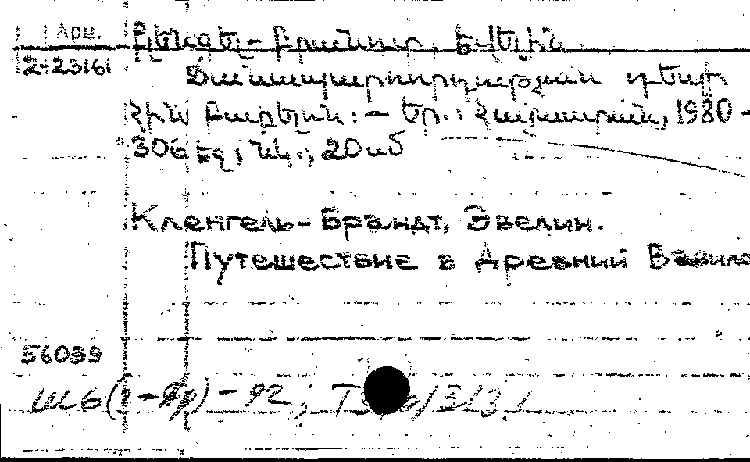 Арм. Կլենգել-Բրանդտ, Էվելին
2-23161 Ճանապարհորդություն դեպի
Հին Բաբելոն: – Եր.: Հայաստան, 1980 –
306 էջ; նկ.; 20 սմ
Кленгель-Брандт, Эвелин.
Путешествие в Древний Вавило
56039